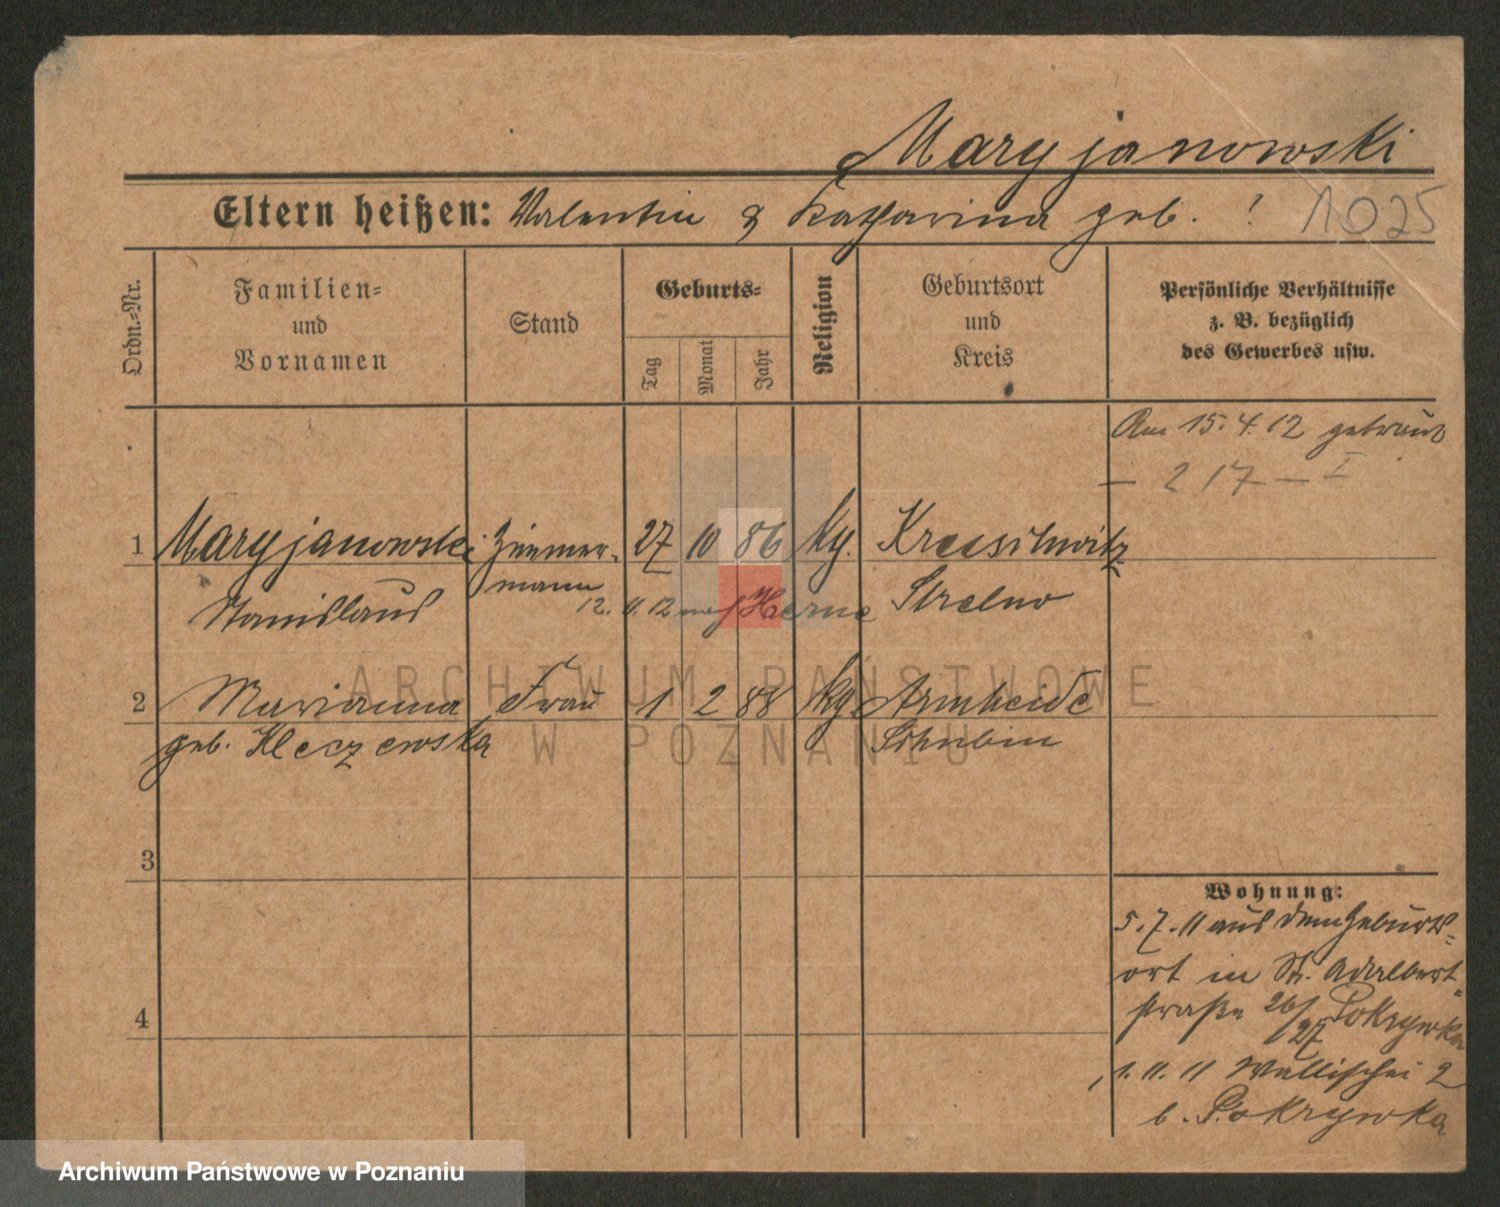 Maryjanowski
Eltern heißen: Valentin & Katharina geb. ?
1025
Ordn.-Nr.
Familien-
und
Vornamen
Stand
Geburts-
Tag
Monat
Jahr
Religion
Geburtsort
und
Kreis
Persönliche Verhältnisse
z. B. bezüglich
des Gewerbes usw.
Am 15.4.12 getraut
— 217 — I
1 Maryjanowski Zimmer- 27 10 86 kg.
mann
Stanislaus Strelno
12. 11. 12 nach Herne
2 Marianna Frau 1 2 88 kg. Armheide
geb. Kleczewska Schubin
3
4
Wohnung:
5.7.11 aus dem Geburts-
ort in St. Adalbert-
straße 26/27 Pokrywka
1. 11. 11 Wallischei 2
b. Pokrywka
ARCHIWUM PAŃSTWOWE
W POZNANIU
Archiwum Państwowe w Poznaniu